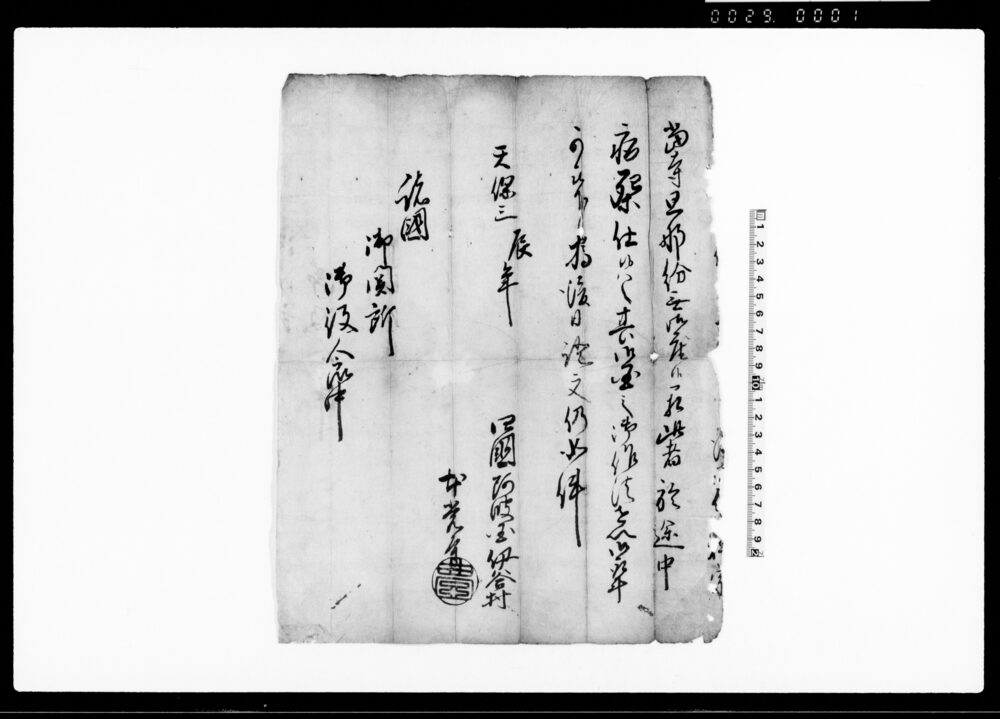 0029.0001
當寺旦那紛無御座候若此者於途中
病死仕候ハヽ其所之御作法を以御葬
可被下候為後日證文仍如件
天保三辰年
四國阿波國伊谷村
本覚寺
諸國
御関所
御役人衆中
1 2 3 4 5 6 7 8 9 10 1 2 3 4 5 6 7 8 9 2